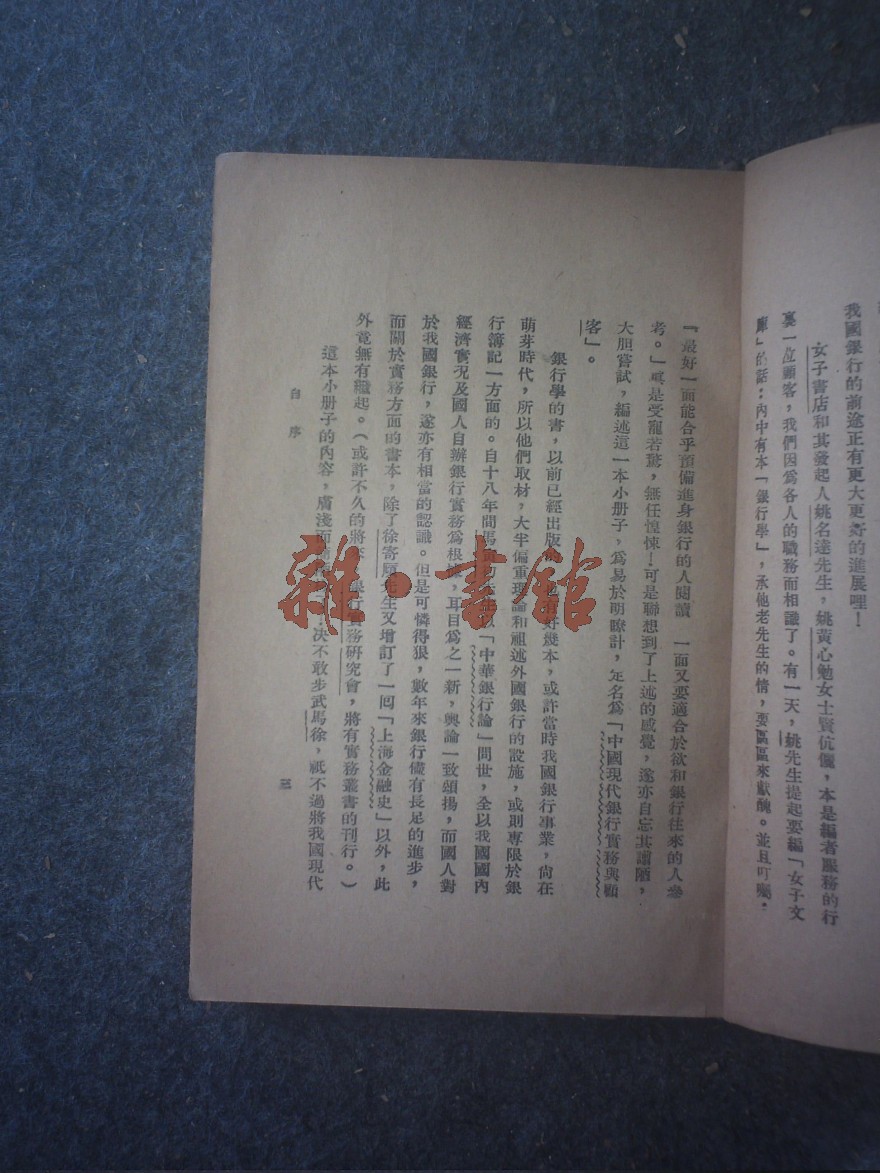 我國銀行的前途正有更大更好的進展哩！
女子書店和其發起人姚名達先生，姚黃心勉女士賢伉儷，本是編者服務的行
裏一位顧客，我們因爲各人的職務而相識了。有一天，姚先生提起要編「女子文
庫」的話；內中有本「銀行學」，承他老先生的情，要區區來獻醜。並且叮囑·
『最好一面能合乎預備進身銀行的人閱讀　一面又要適合於欲和銀行往來的人參
考。』眞是受寵若驚，無任惶悚！可是聯想到了上述的感覺，遂亦自忘其譾陋，
大胆嘗試，編述這一本小册子，爲易於明瞭計，定名爲「中國現代銀行實務與顧
客」。
銀行學的書，以前已經出版 有好幾本，或許當時我國銀行事業，尙在
萌芽時代，所以他們取材，大半偏重理論和祖述外國銀行的設施，或則專限於銀
行簿記一方面的。自十八年間馬 「中華銀行論」問世，全以我國國內
經濟實况及國人自辦銀行實務爲根據，耳目爲之一新，輿論一致頌揚，而國人對
於我國銀行，遂亦有相當的認識。但是可憐得狠，數年來銀行儘有長足的進步，
而關於實務方面的書本，除了徐寄廎先生又增訂了一囘「上海金融史」以外，此
外竟無有繼起。（或許不久的將來 銀行實務研究會，將有實務叢書的刊行。）
這本小册子的內容，膚淺而 決不敢步武馬徐，祇不過將我國現代
自序
三
雜·書館